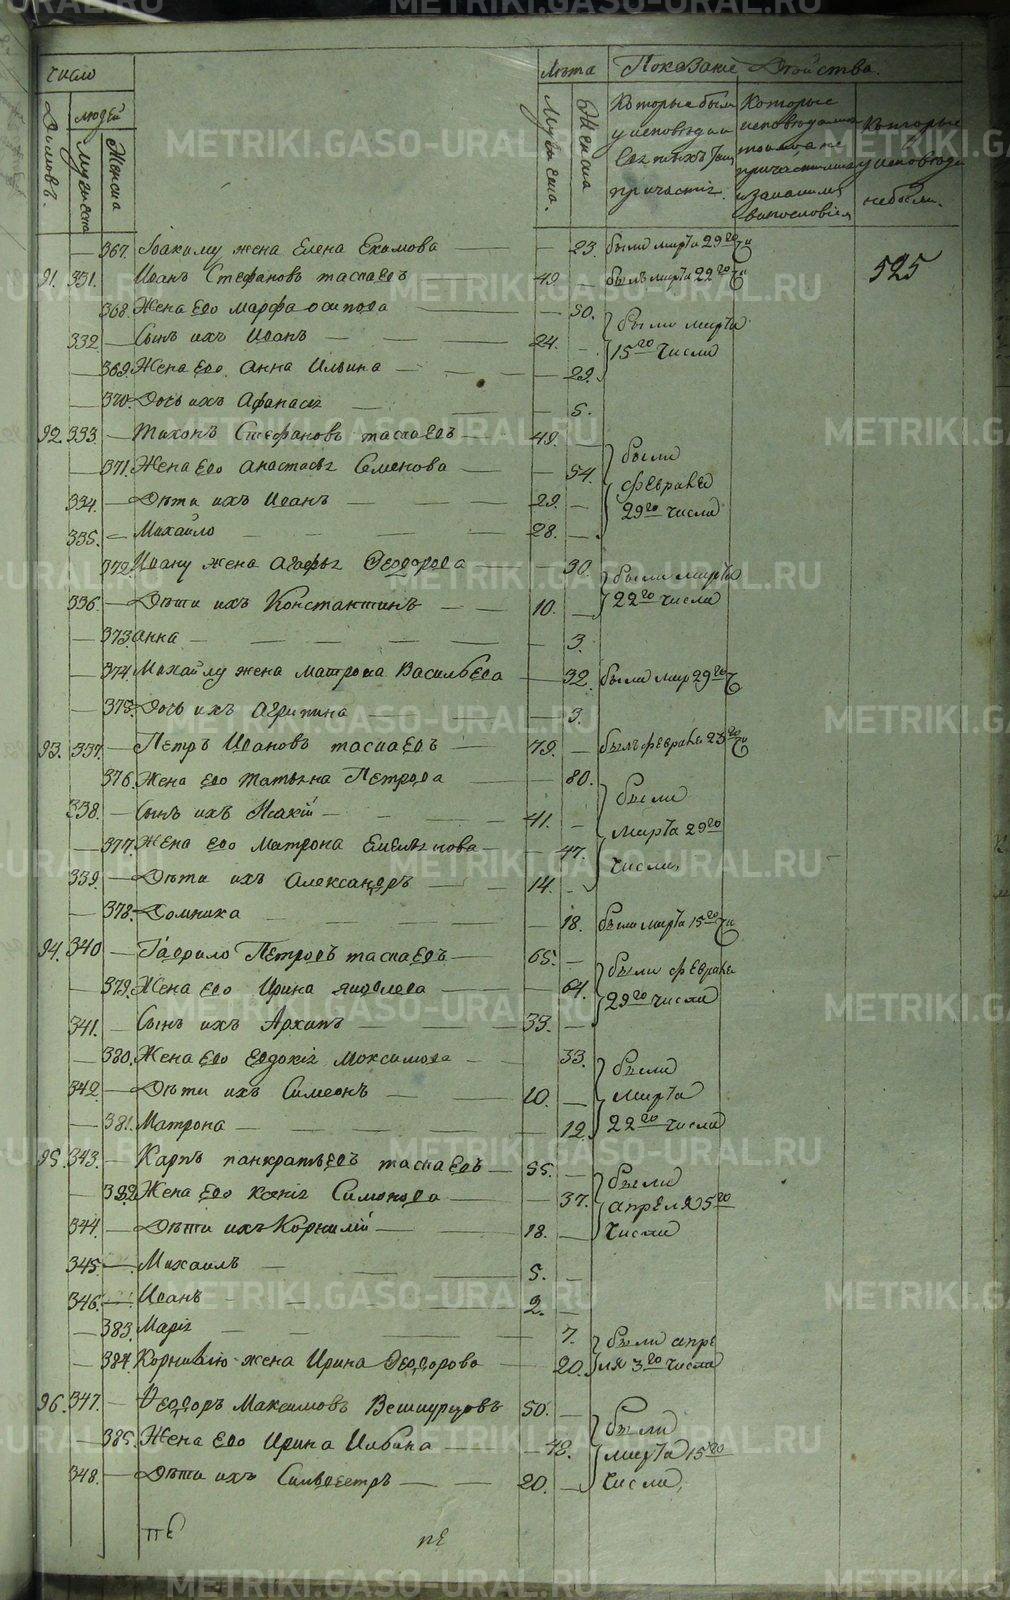 Число Лѣта Показанïе Дѣйства.
Домовъ. людей Мужеска Женска Мужеска. Женска Которые были у исповѣди и святыхъ Таин причастiя. Которые исповѣдались токмо а не причастились и за какимъ винословïем Которые у исповѣди небыли.
367. Иоакиму жена Елена Екимова — 23. были марта 29го чи
91. 331. Иванъ Стефановъ таскаевъ 49. — былъ марта 22го чи 525
368. Жена Его Марфа осипова — 50. были марта
332 Сынъ ихъ Иванъ 24. — 15го числа
369. Жена Его Анна Ильина — 29.
370. Дочь ихъ Афанасiя — 5.
92. 333. Тихонъ Стефановъ таскаевъ 49. —
371. Жена Его Анастасья Семенова — 54. были
334. Дѣти ихъ Иванъ 29. — февраля
335. Михайло 28. — 29го числа
372. Ивану жена Агафья Ѳеодорова — 30.
336. Дѣти ихъ Константинъ 10. — были марта 22го числа
373. анна — 3.
374. Михайлу жена Матрона Васильева — 32. были мар 29го Ч
375. Дочь ихъ Агрипина — 3.
93. 337. Петръ Ивановъ таскаевъ 79. — былъ февраля 23го Ч
376. Жена Его Татьяна Петрова — 80.
338. Сынъ ихъ 41. — были
377. Жена Его Матрона Емелянова — 47. марта 29го
339. Дѣти ихъ Александръ 14. — числа,
378. Домника — 18. были марта 15го чи
94. 340 Гаврило Петровъ таскаевъ 65. —
379. Жена Его Ирина Яковлева — 64. были февраля
341. Сынъ ихъ Архипъ 33. — 29го числа
380. Жена Его Евдокiя Максимова — 33. были
342. Дѣти ихъ Симеонъ 10. — марта
381. Матрона — 12. 22го числа
95. 343. Карпъ панкратьевъ таскаевъ 55. —
382. Жена Его Ксенiя Симонова — 37. были апреля 5го
344. Дѣти ихъ Корнилiй 18. — числа
345. Михаилъ 5. —
346. Иванъ 2. —
383. Марiя — 7. были апре
384. Корнилiю жена Ирина Ѳеодорова — 20. ля 3го числа
96. 347. Ѳеодоръ Максимовъ Вешкурцовъ 50. — были
385. Жена Его Ирина Ильина — 48. марта 15го
348. Дѣти ихъ Силвестръ 20. — числа,
пЕ
METRIKI.GASO-URAL.RU